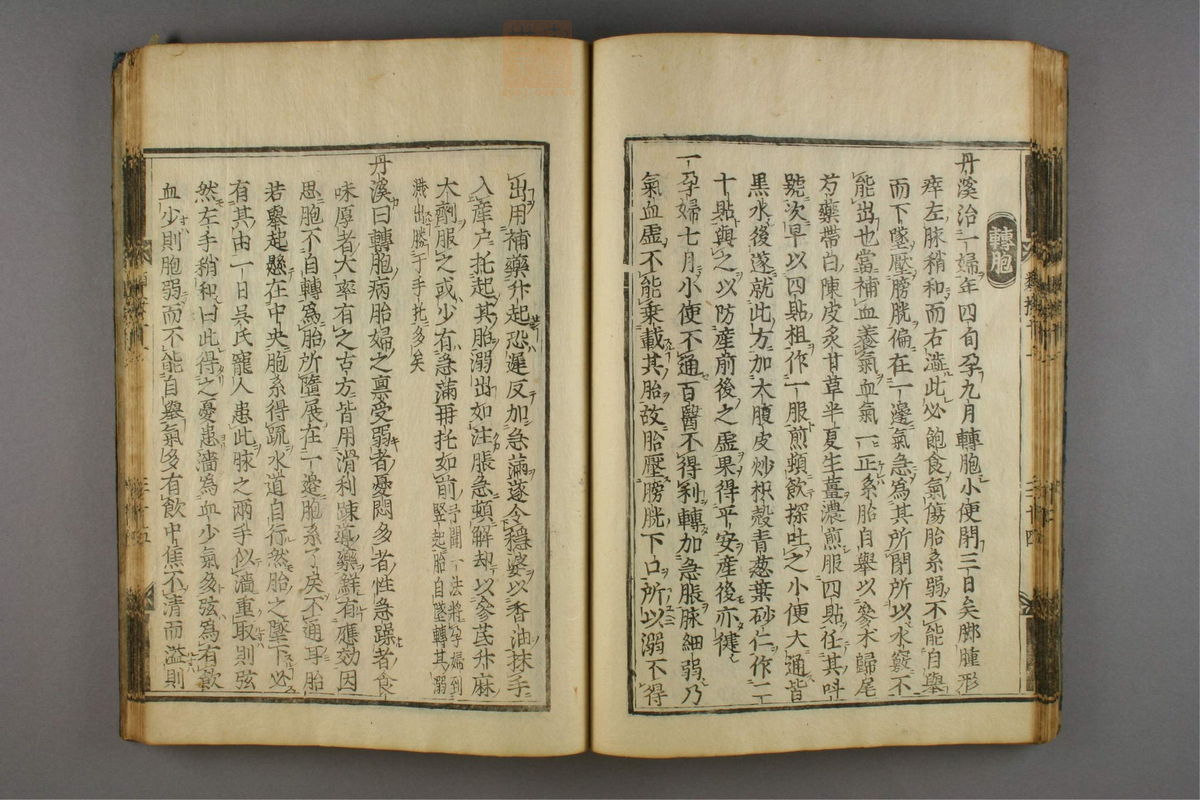 轉胞
丹溪治一婦年四旬孕九月轉胞小便閉三日矣脚腫形
瘁左脉稍和而右濇此必飽食氣傷胎系弱不能自舉
而下墜壓膀胱偏在一邊氣急爲其所閉所以水竅不
能出也當補血養氣血氣一正系胎自舉以參朮歸尾
芍藥帶白陳皮炙甘草半夏生薑濃煎服四貼任其叫
號次早以四貼粗作一服煎頓飲探吐之小便大通皆
黑水後遂就此方加大腹皮炒枳殼青葱葉砂仁作二
十貼與之以防産前後之虛果得平安産後亦健
一孕婦七月小便不通百醫不得利轉加急脹脉細弱乃
氣血虛不能乗載其胎故胎壓膀胱下口所以溺不得
出用補藥升起恐遲反加急滿遂令穩婆以香油抹手
入産户托起其胎溺出如注脹急頓解却以參芪升麻
大劑服之或少有急滿再托如前
一法將孕婦到
竪起胎自墜轉其溺
濺出勝于手托多矣
丹溪曰轉胞病胎婦之禀受弱者憂悶多者性急躁者食
味厚者大率有之古方皆用滑利踈導藥鮮有應効因
思胞不自轉爲胎所墮展在一邊胞系了戾不通耳胎
若舉起懸在中央胞系得踈水道自行然胎之墜下必
有其由一日吳氏寵人患此脉之兩手似濇重取則弦
然左手稍和曰此得之憂患濇爲血少氣多弦爲有飲
血少則胞弱而不能自舉氣多有飲中焦不清而溢則